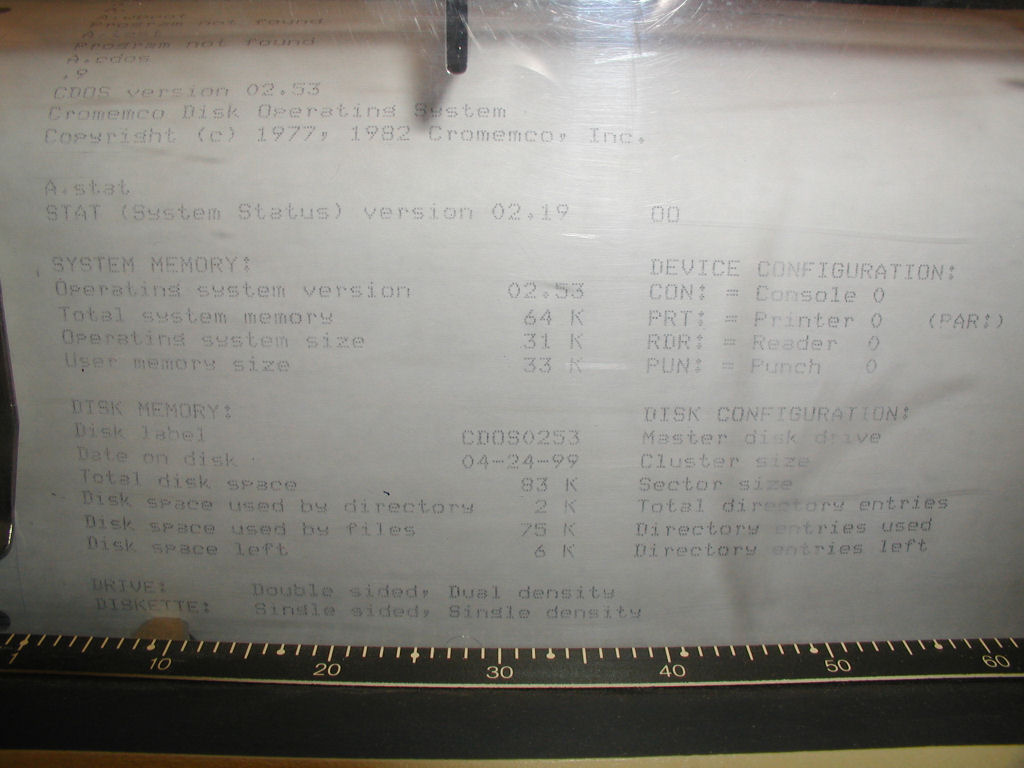 Program not found
A.test
Program not found
A.cdos
.9
CDOS version 02.53
Cromemco Disk Operating System
Copyright (c) 1977, 1982 Cromemco, Inc.
A.stat
STAT (System Status) version 02.19 00
SYSTEM MEMORY: DEVICE CONFIGURATION:
Operating system version 02.53 CON: = Console 0
Total system memory 64 K PRT: = Printer 0 (PAR:)
Operating system size 31 K RDR: = Reader 0
User memory size 33 K PUN: = Punch 0
DISK MEMORY: DISK CONFIGURATION:
Disk label CDOS0253 Master disk drive
Date on disk 04-24-99 Cluster size
Total disk space 83 K Sector size
Disk space used by directory 2 K Total directory entries
Disk space used by files 75 K Directory entries used
Disk space left 6 K Directory entries left
DRIVE: Double sided, Dual density
DISKETTE: Single sided, Single density
1 10 20 30 40 50 60